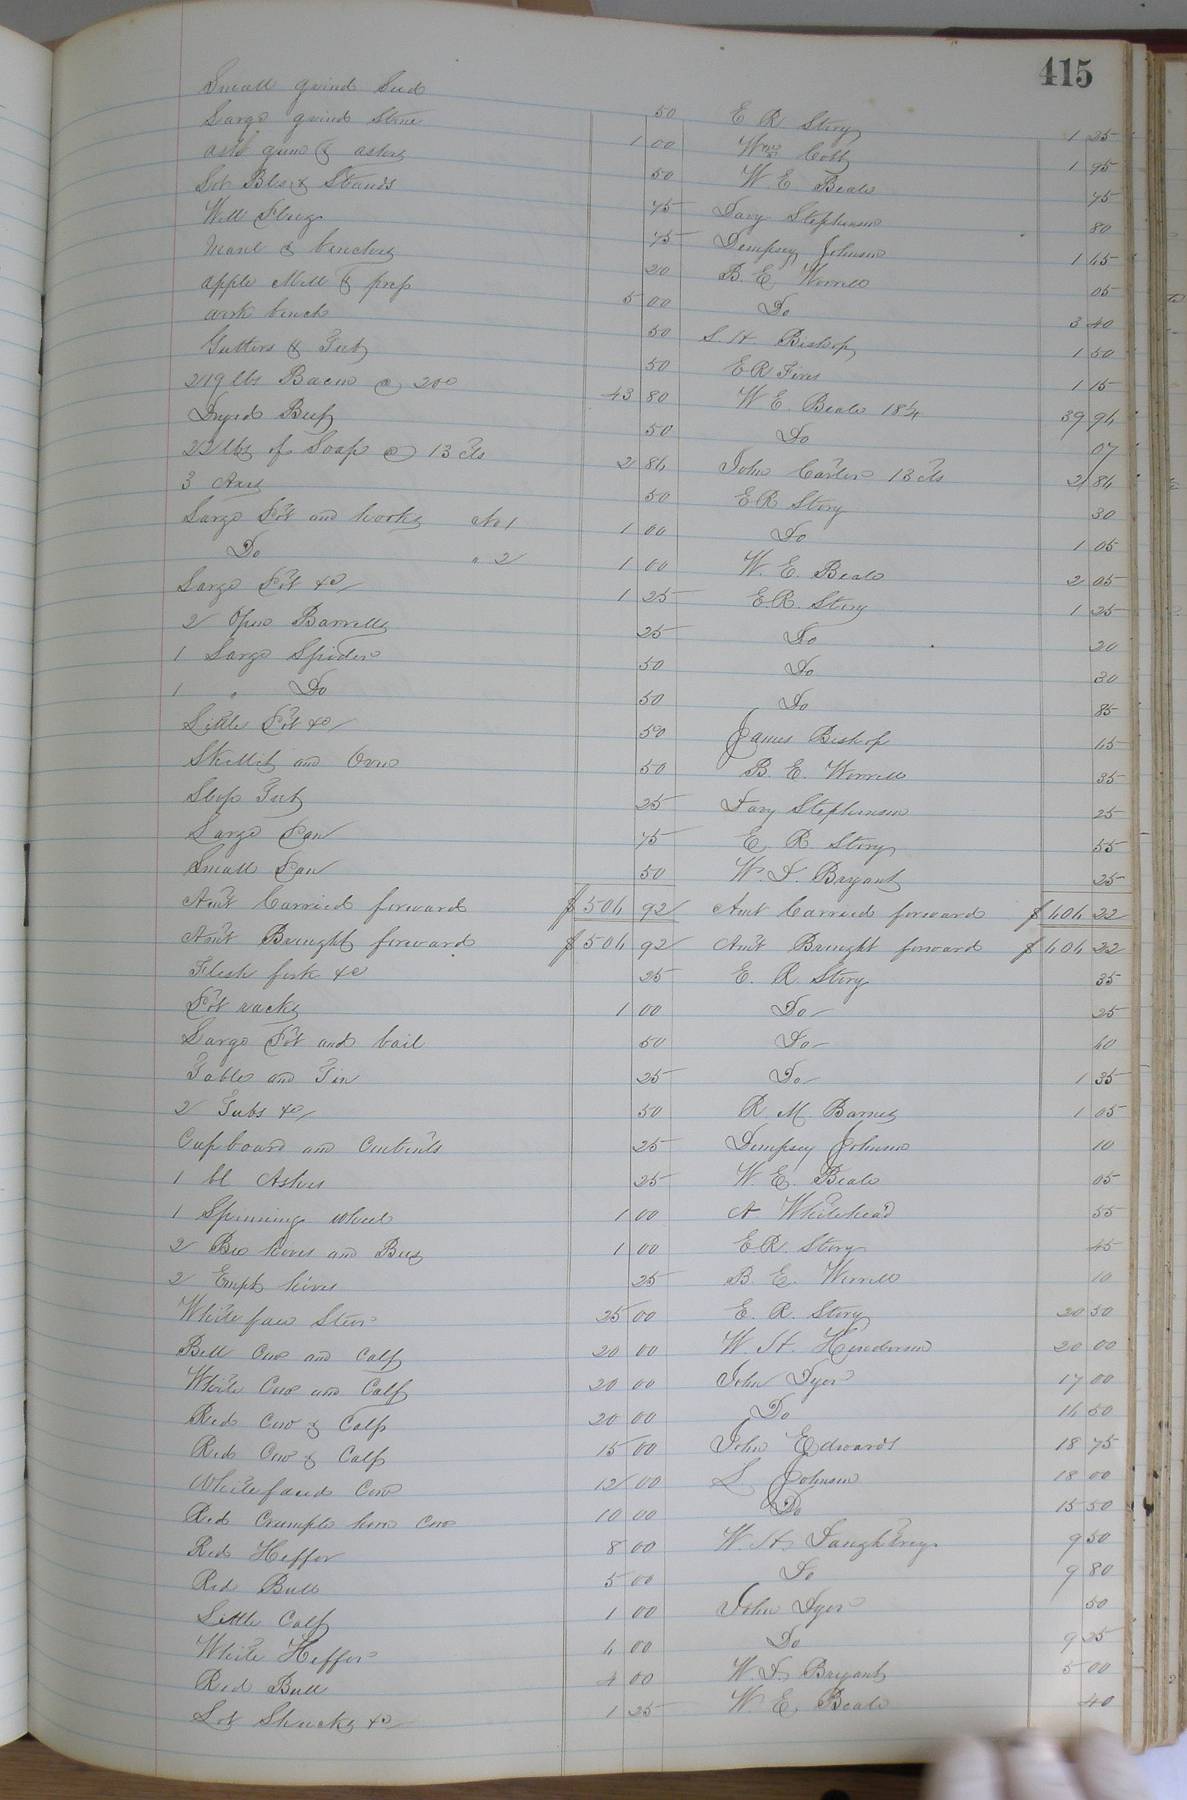 415
Small grind
Large grind Stone 50 E R Story 1 25
& ashes 1 00 Wm Cobb 1 95
Lot Stands 50 W E Beale 75
Well 75 Davy Stephenson 80
& benches 75 Dempsey Johnson 1 45
apple Mill & press 20 B. E. Worrell 05
work bench 5 00 Do 3 40
Gutters & Tub 50 S. H Bishop 1 50
219 lbs Bacon @ 20c 50 E R 1 15
Dryed Beef 43 80 W E. Beale 18¼ 39 94
22 lbs of Soap @ 13 cts 50 Do 07
3 Axes 2 84 John Carter 13 cts 2 84
Large Pot and hooks No 1 50 E R Story 30
Do " 2 1 00 Do 1 05
Large Pot &c 1 00 W. E. Beale 2 05
2 Open Barrells 1 25 E R. Story 1 25
1 Large Spider 25 Do 20
1 " Do 50 Do 30
Little Pot &c 50 Do 85
Skillit and Oven 50 James Bishop 45
Slop Tub 50 B. E. Worrell 35
Large Pan 25 Davy Stephenson 25
Small Pan 75 E. R. Story 55
50 W. J. Bryant 25
Am't Carried forward $504 92 Amt Carried forward $404 22
Am't Brought forward $504 92 Am't Brought forward $404 22
Flesh fork &c 25 E. R. Story 35
Pot racks 1 00 Do 25
Large Pot and bail 50 Do 40
Table and Tin 25 Do 1 35
2 Tubs &c 50 R. M. Barnes 1 05
Cupboard and Contents 25 Dempsey Johnson 10
1 bl Ashes 25 W E. Beale 05
1 Spinning wheel 1 00 A Whitehead 55
2 Bee hives and Bees 1 00 E R. Story 45
2 Empty hives 25 B E. Worrell 10
White face Steer 25 00 E. R. Story 20 50
Bell Cow and Calf 20 00 W. H. Henderson 20 00
White Cow and Calf 20 00 John Dyer 17 00
Red Cow & Calf 20 00 Do 14 50
Red Cow & Calf 15 00 John Edwards 18 75
White faced Cow 12 00 S Johnson 18 00
Red Crumple horn Cow 10 00 Do 15 50
Red Heffer 8 00 W H. Daughtrey 9 50
Red Bull 5 00 Do 9 80
Little Calf 1 00 John Dyer 50
White Heffer 4 00 Do 9 25
Red Bull 4 00 W. J. Bryant 5 00
Lot Shucks &c 1 25 W. E. Beale 40